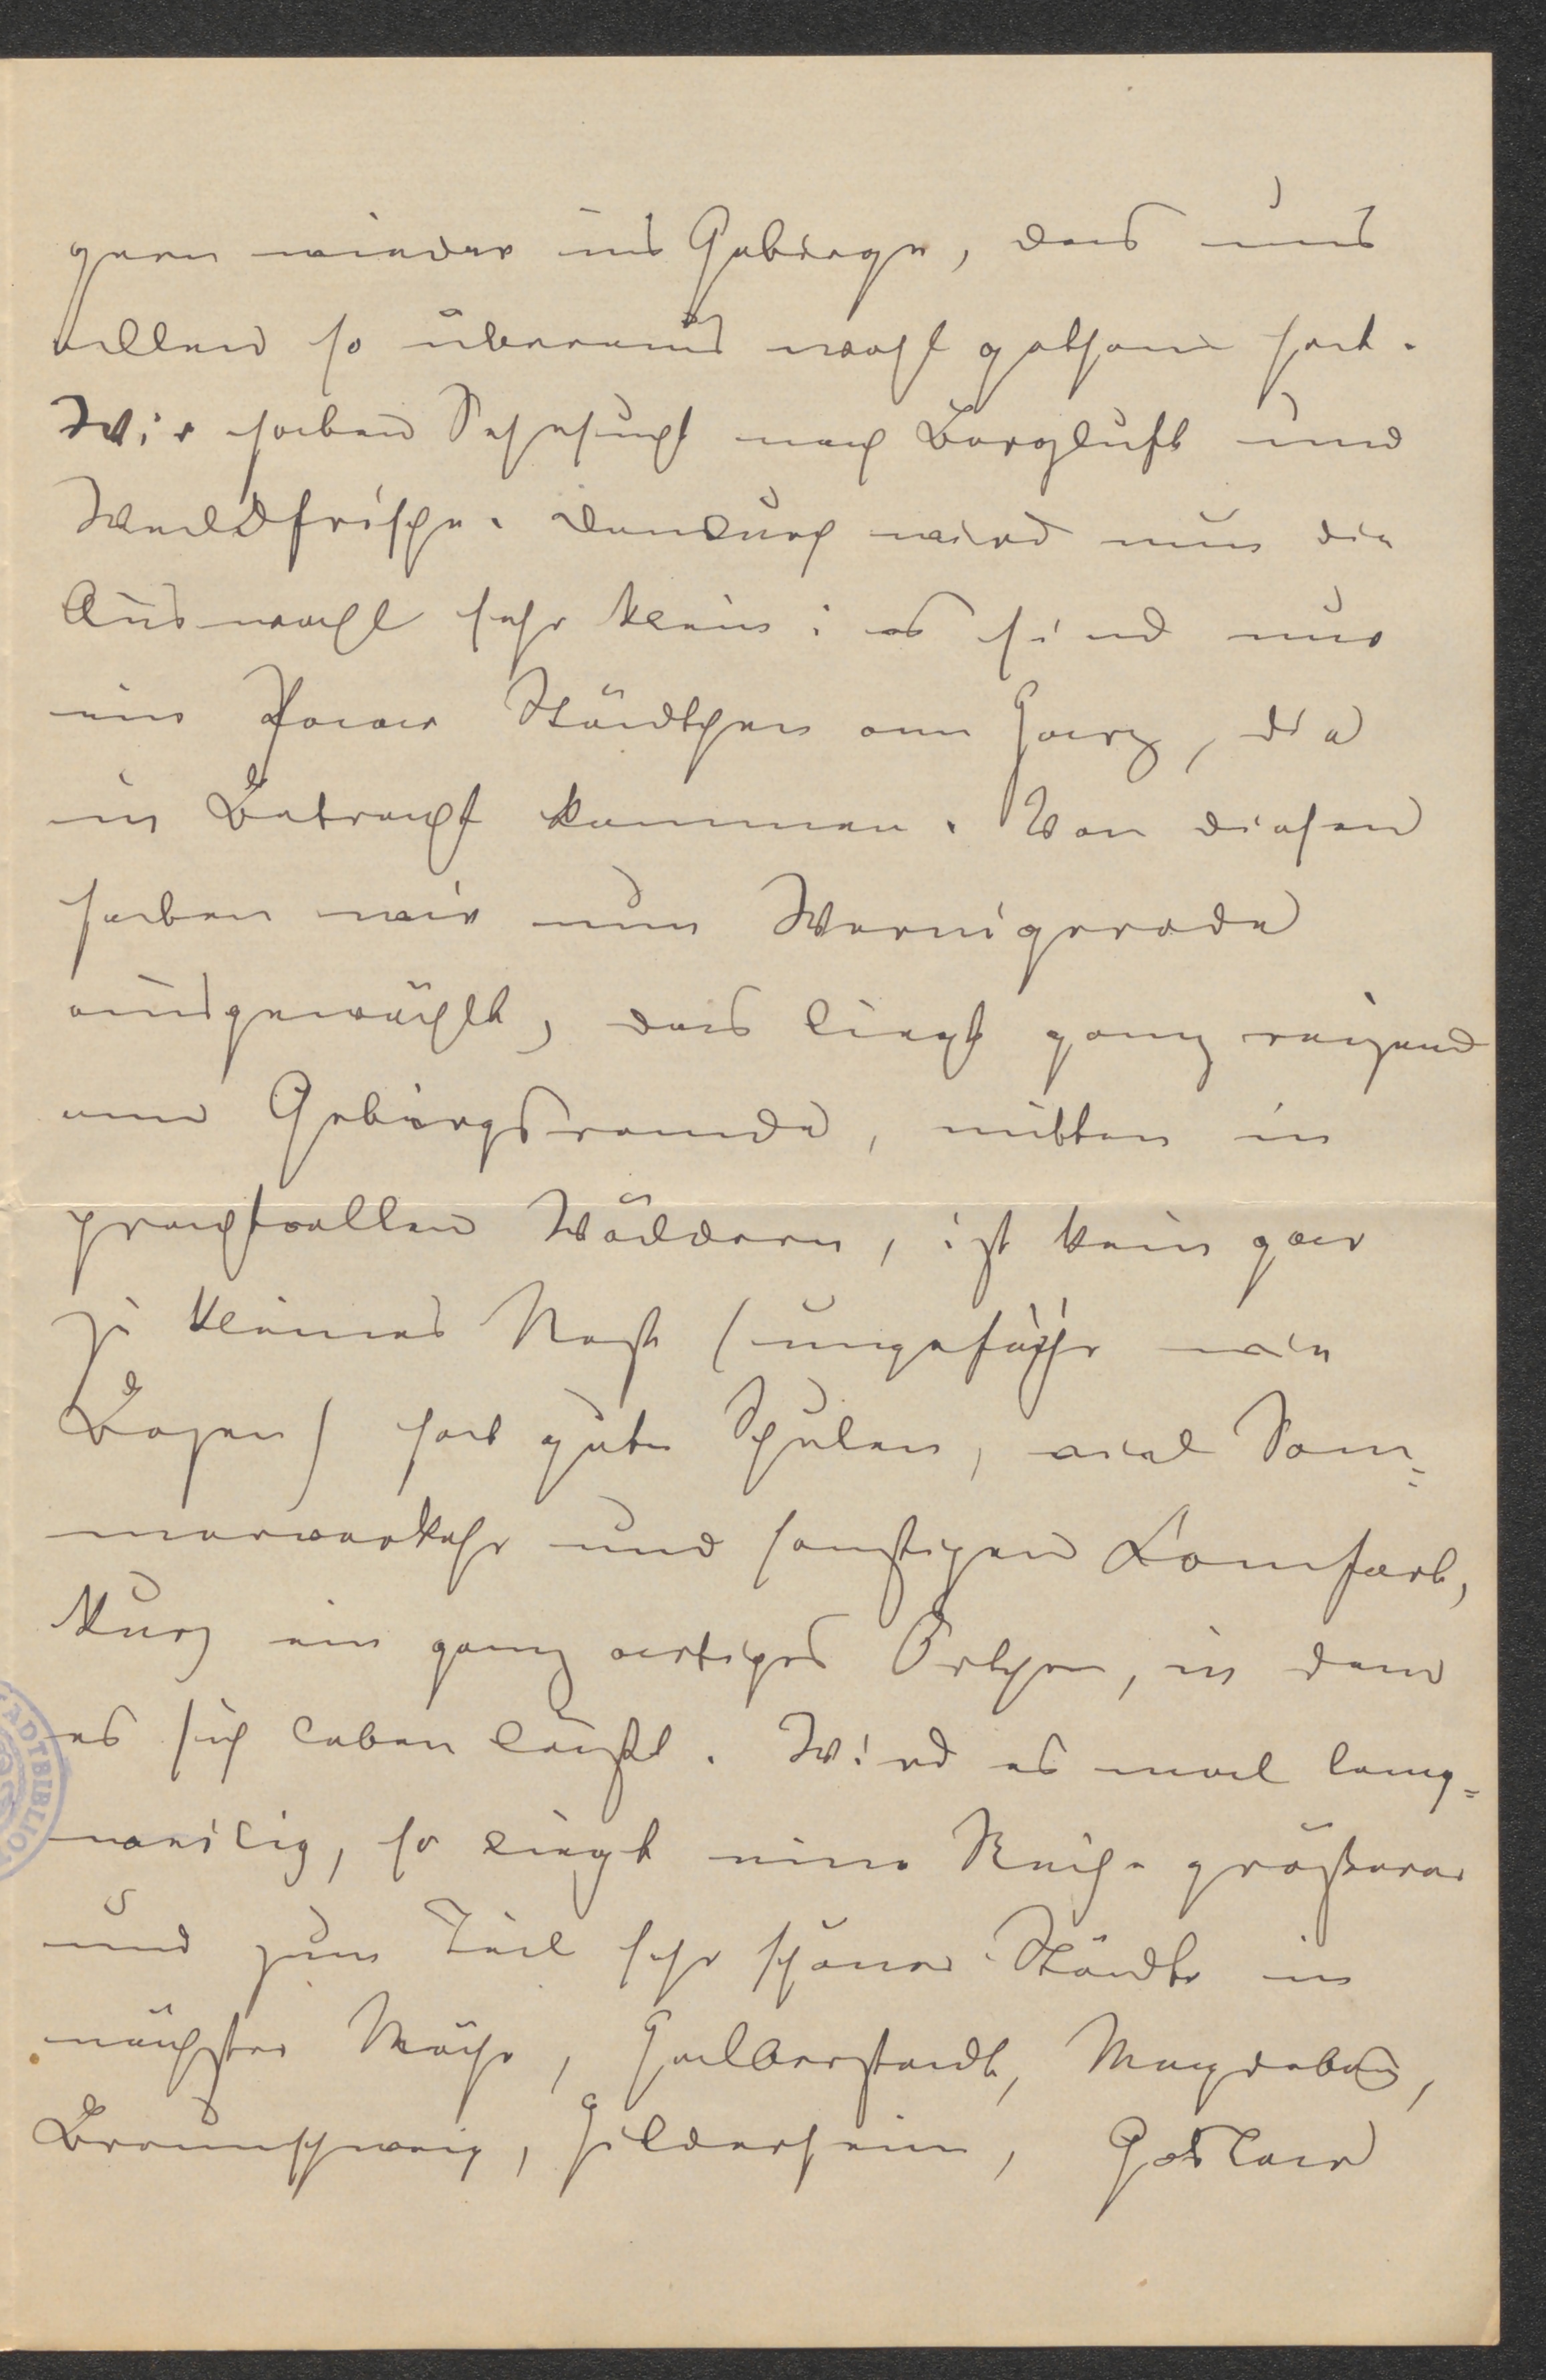 gern wieder ins Gebirge, das uns
allen so überaus wohl gethan hat.
Wir haben Sehnsucht nach Bergluft und
Waldfrische. Dadurch wird nun die
Auswahl sehr klein: es sind nur
ein Paar Städtchen am Harz, die
in Betracht kommen. Von diesen
haben wir nun Wernigerode
ausgewählt, das liegt ganz reizend
am Gebirgsrande, mitten in
prachtvollen Wäldern, ist kein gar
zu kleines Nest (ungefähr wie
Bozen) hat gute Schulen, viel Som=
merverkehr und sonstigen Komfort,
kurz ein ganz artiges Örtchen, in dem
es sich leben läßt. Wird es mal lang=
weilig, so liegt eine Reihe größerer
und zum Teil sehr schöner Städte in
nächster Nähe, Halberstadt, Magdeburg,
Braunschweig, Hildesheim, Goslar